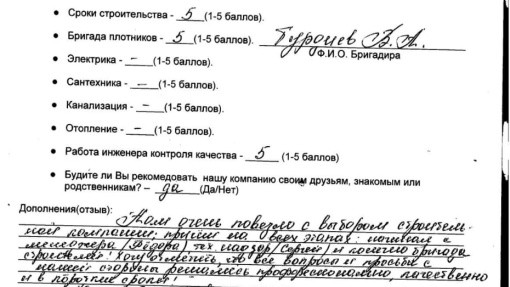 • Сроки строительства - 5 (1-5 баллов).
• Бригада плотников - 5 (1-5 баллов). В.А.
Ф.И.О. Бригадира
• Электрика - – (1-5 баллов).
• Сантехника - – (1-5 баллов).
• Канализация - – (1-5 баллов).
• Отопление - – (1-5 баллов).
• Работа инженера контроля качества - 5 (1-5 баллов)
• Будите ли Вы рекомедовать нашу компанию своим друзьям, знакомым или
родственникам? – да (Да/Нет)
Дополнения(отзыв):
Нам очень повезло с выбором строитель-
ной компании, на всех этапах: начиная с
менеджера (Фёдора) тех надзор (Сергей) и конечно бригада
строителей! Хочу отметить, что все вопросы и просьбы с
нашей стороны решались профессионально, качественно
и в короткие сроки!